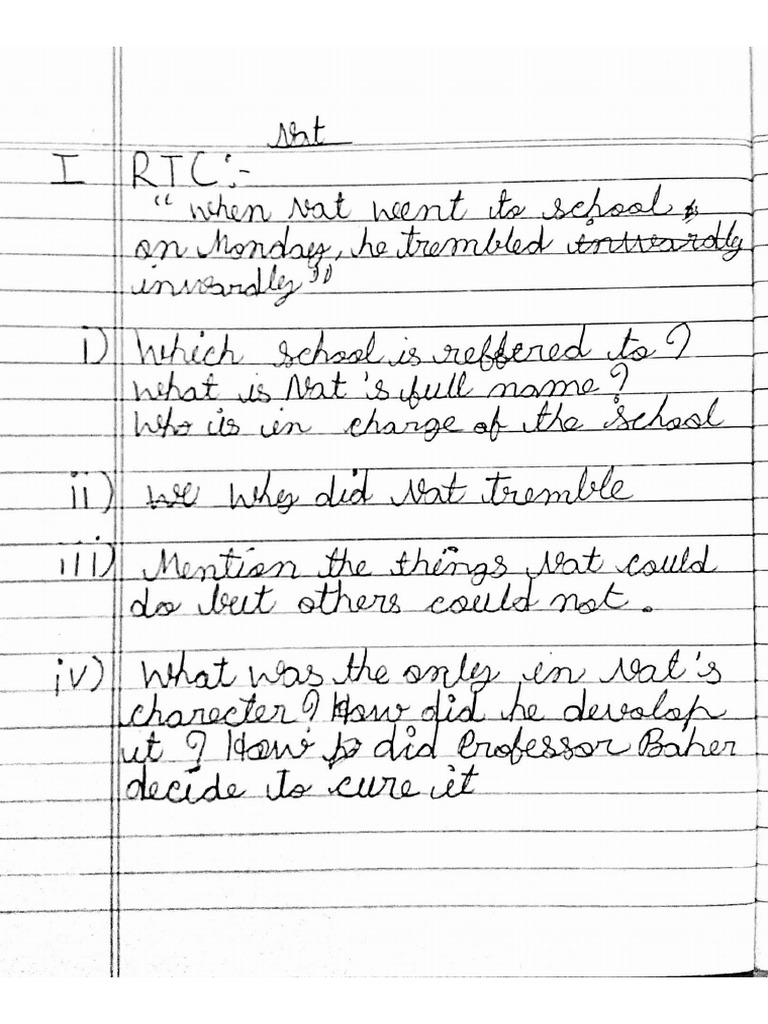 Nat
I RTC:-
"When Nat went to school
on Monday, he trembled inwardly
inwardly"
i) Which school is reffered to?
What is Nat's full name?
Who is in charge of the School
ii) we Why did Nat tremble
iii) Mention the things Nat could
do but others could not.
iv) What was the only in Nat's
charecter? How did he devolop
it? How did Professor Baher
decide to cure it